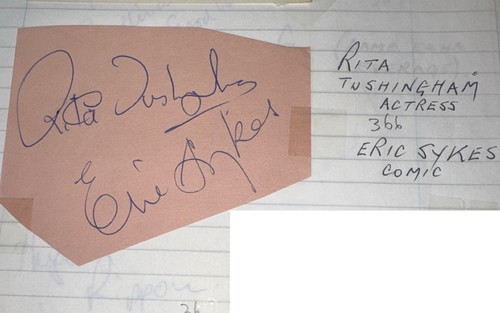 Rita Tushingham
Eric Sykes
RITA
TUSHINGHAM.
ACTRESS
366
ERIC SYKES
COMIC
36